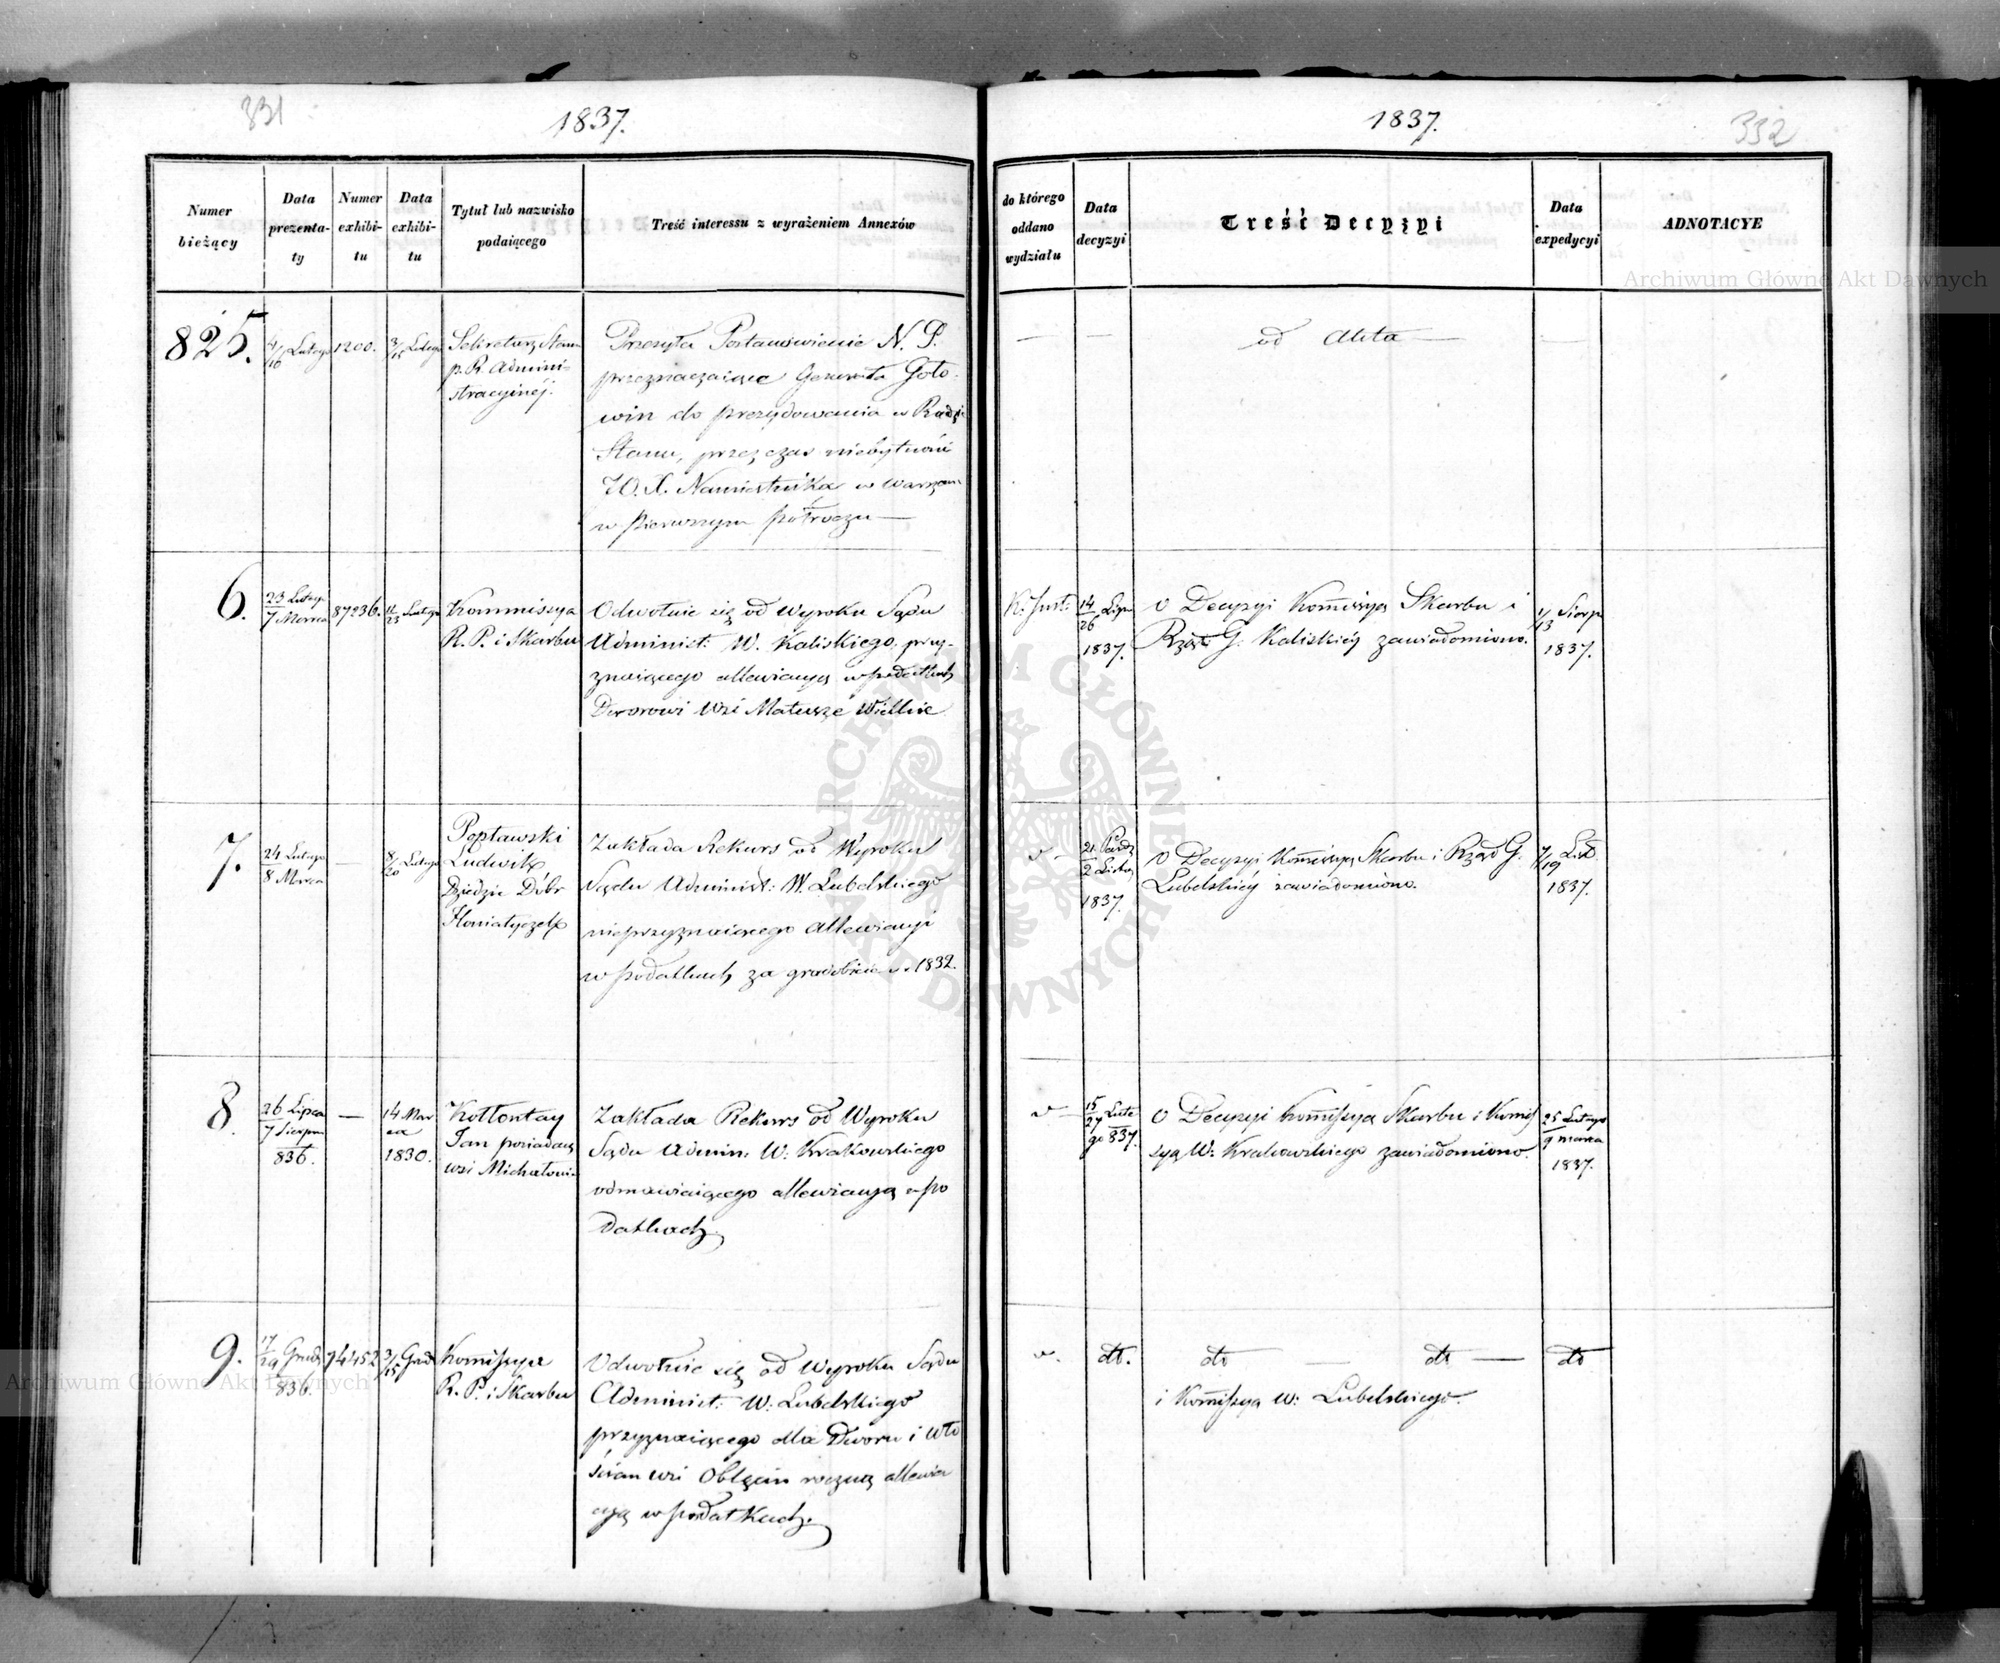 331
1837.
Numer bieżący
Data prezenta-ty
Numer exhibi-tu
Data exhibi-tu
Tytuł lub nazwisko podaiącego
Treść interessu z wyrażeniem Annexów
825.
4/16 Lutego
1200.
3/15 Lutego
Sekretarz Stanu
p. R. Admini-
stracyinéj.
Przesyła Postanowienie N. P.
przeznaczaiące Generała Goło-
win do prezydowania w Radzie
Stanu, przez czas niebytności
J.O. X. Namiestnika w Warszaw
w pierwszym półroczu —
6.
23 Lutego
7 Marca
87236.
11/23 Lutego
Kommissya
R. P. i Skarbu
Odwołuie się od Wyroku Sądu
Administ: W. Kaliskiego, przy-
znaiącego allewiacyą w podatkach
Dworowi Wsi Matusze Wielkie
7.
24 Lutego
8 Marca
—
8/20 Lutego
Popławski
Ludwik
Dziedzic Dóbr
Honiatyczek
Zakłada Rekurs od Wyroku
Sądu Administ: W. Lubelskiego
nieprzyznaiącego allewiacyi
w podatkach za gradobicie w 1832.
8.
26 Lipca
7 Sierpnia
836.
—
14 Mar
ca
1830.
Kołłontay
Jan posiadacz
wsi Michałowic
Zakłada Rekurs od Wyroku
Sądu Admin: W: Krakowskiego
odmawiaiącego allewiacyą w po
datkach.
9.
17/29 Grud
836.
94452
3/15 Grud
Kommissya
R. P. i Skarbu
Odwołuie się od Wyroku Sądu
Administ: W: Lubelskiego
przyznaiącego dla Dworu i wło
ścian wsi roczną allewia
cyą w podatkach.
332
1837.
do którego oddano wydziału
Data decyzyi
Treść Decyzyi
Data expedycyi
ADNOTACYE
— —
ad Acta —
—
K. Just:
14/26 Lipca
1837.
O Decyzyi Kommissya Skarbu i
Rząd G. Kaliskiéy zawiadomiono.
1/13 Sierp
1837.
v —
21 Paźdz
2 Listop
1837.
O Decyzyi Kommissya Skarbu i Rząd G.
Lubelskiéy zawiadomiono.
7/19 List.
1837.
v —
15/27 Lute
go 837.
O Decyzyi Kommissya Skarbu i Komis
sya W: Krakowskiego zawiadomiono.
25 Lutego
9 marca
1837.
v.
dto.
dto — dto — dto
i Kommissya W: Lubelskiego.
Archiwum Główne Akt Dawnych
ARCHIWUM GŁÓWNE
AKT DAWNYCH
Archiwum Główne Akt Dawnych